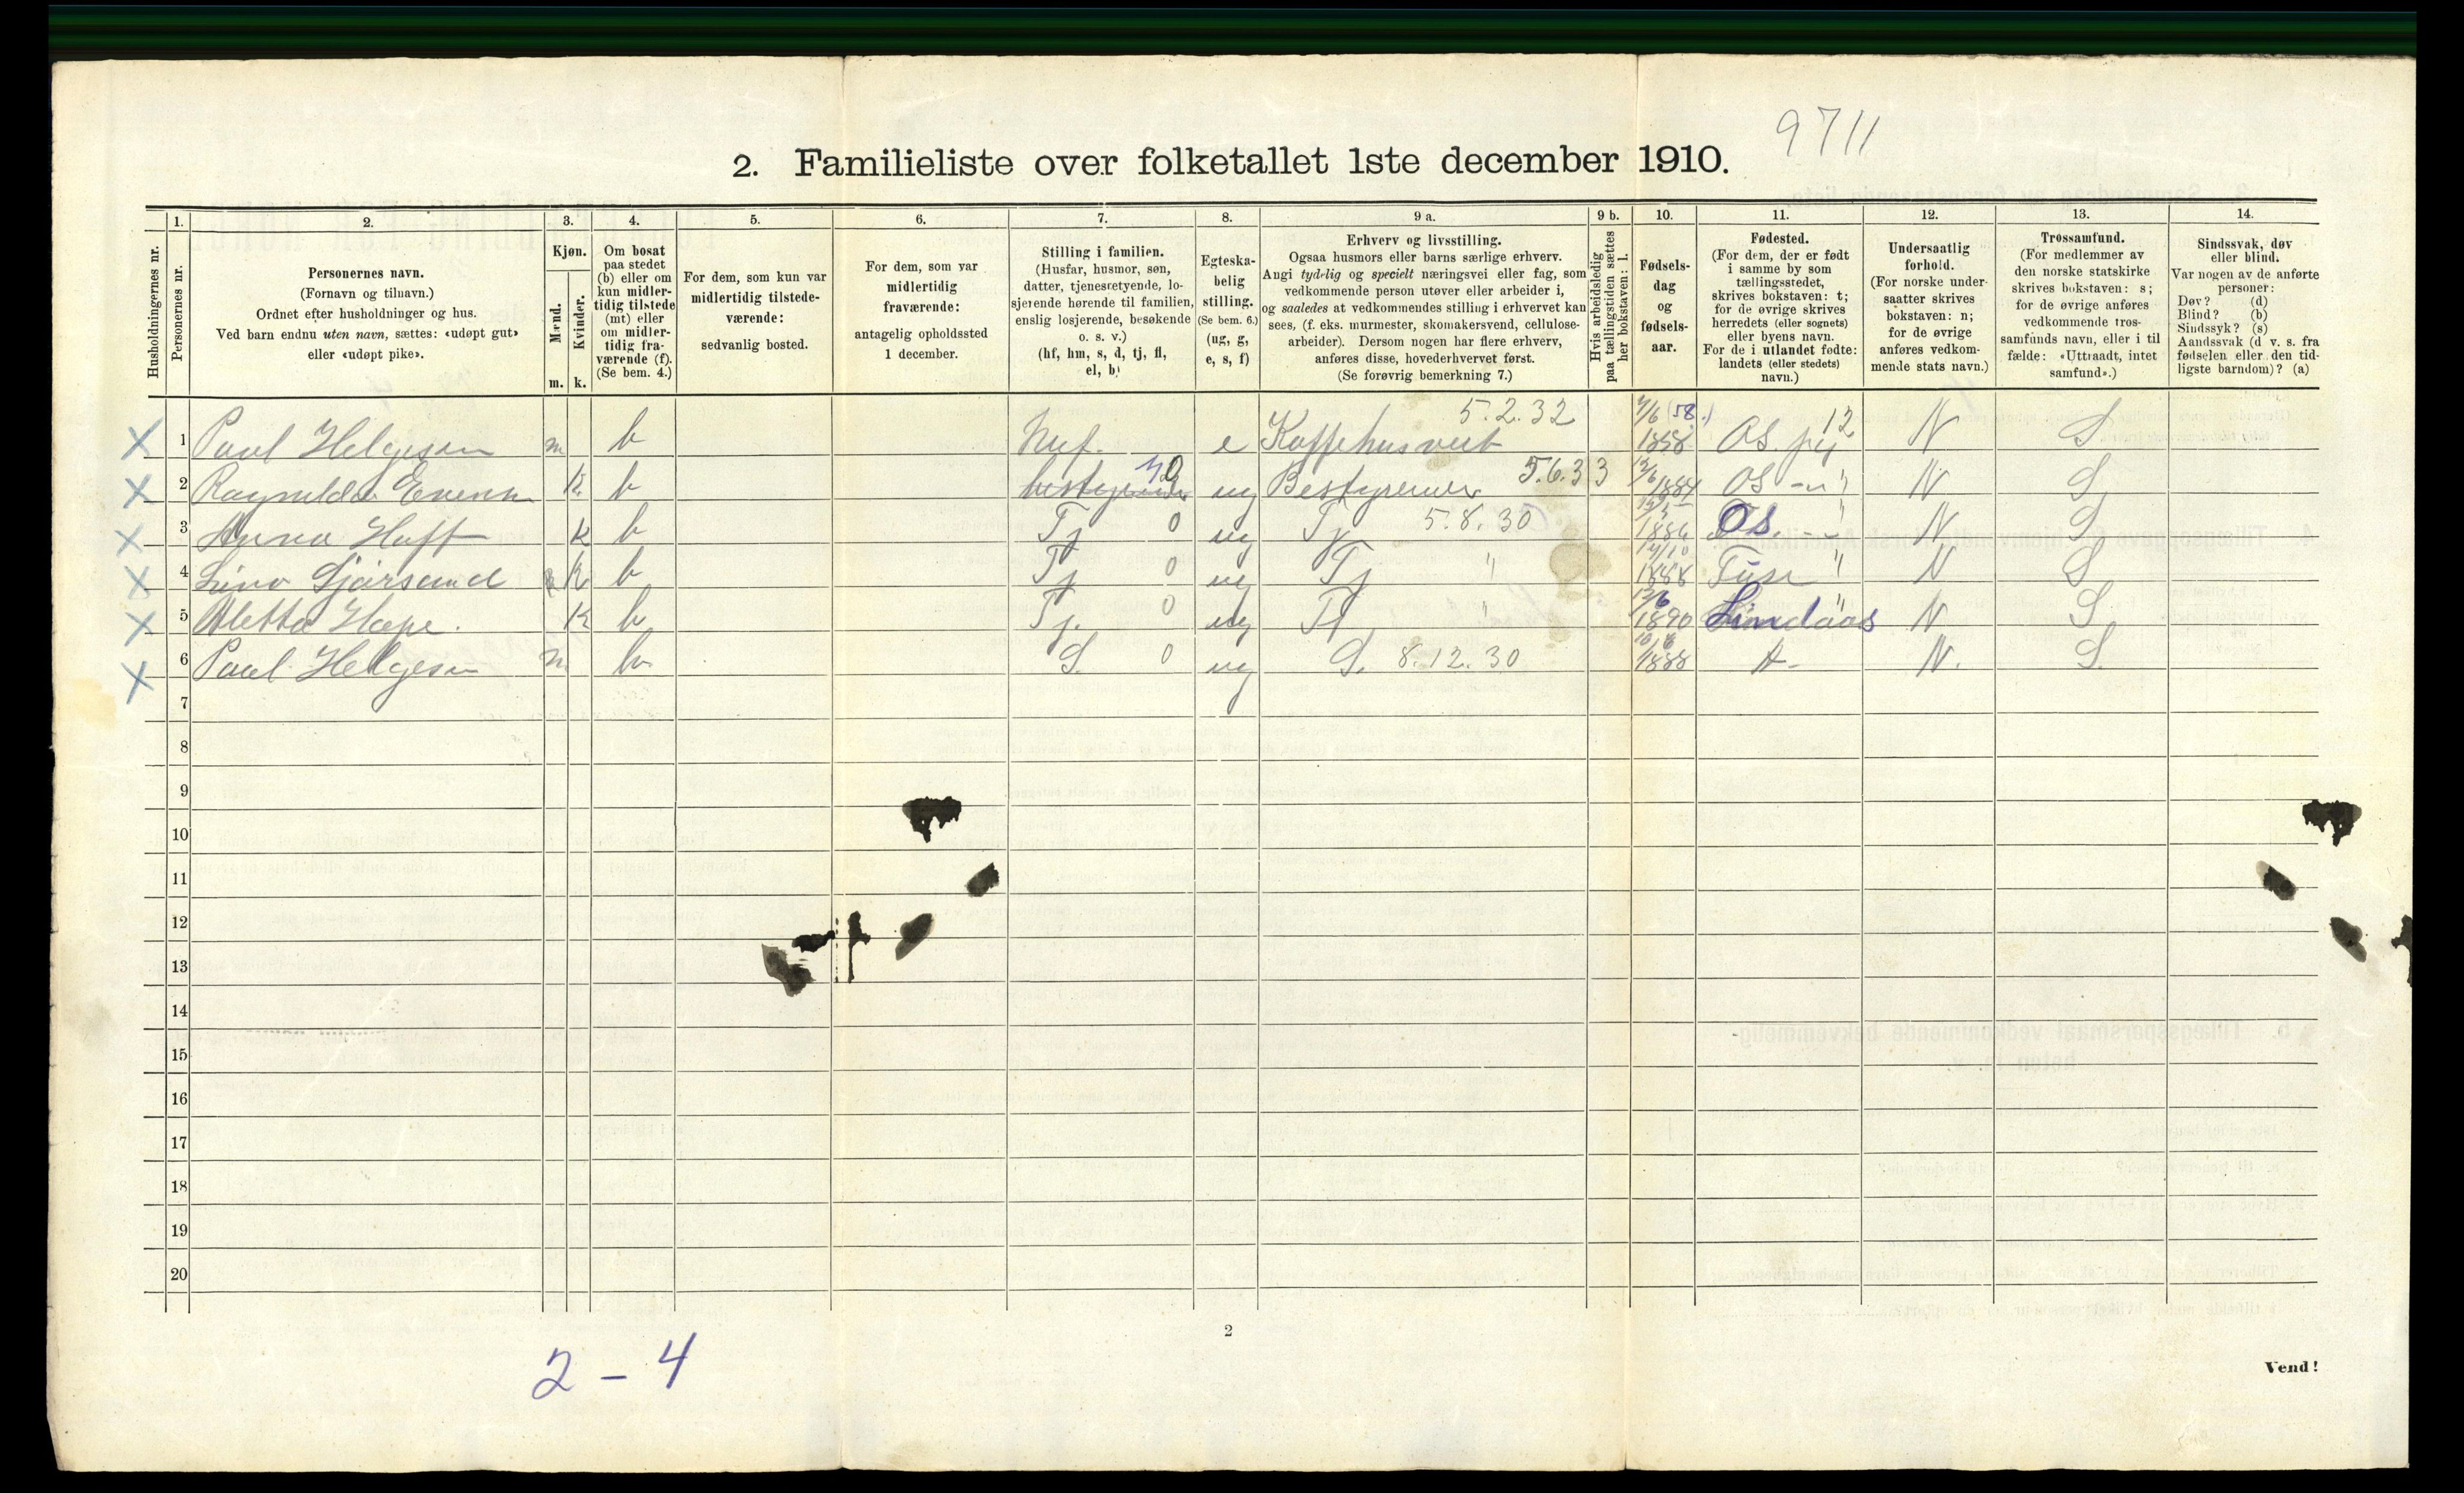 9711
2. Familieliste over folketallet 1ste december 1910.
Husholdningernes nr.
1.
Personernes nr.
2.
Personernes navn.
(Fornavn og tilnavn.)
Ordnet efter husholdninger og hus.
Ved barn endnu uten navn, sættes: «udøpt gut»
eller «udøpt pike».
3.
Kjøn.
Mænd.
Kvinder.
m. k.
4.
Om bosat
paa stedet
(b) eller om
kun midler-
tidig tilstede
(mt) eller
om midler-
tidig fra-
værende (f).
(Se bem. 4.)
5.
For dem, som kun var
midlertidig tilstede-
værende:
sedvanlig bosted.
6.
For dem, som var
midlertidig
fraværende:
antagelig opholdssted
1 december.
7.
Stilling i familien.
(Husfar, husmor, søn,
datter, tjenestetyende, lo-
sjerende hørende til familien,
enslig losjerende, besøkende
o. s. v.)
(hf, hm, s, d, tj, fl,
el, b)
8.
Egteska-
belig
stilling.
(Se bem. 6.)
(ug, g,
e, s, f)
9 a.
Erhverv og livsstilling.
Ogsaa husmors eller barns særlige erhverv.
Angi tydelig og specielt næringsvei eller fag, som
vedkommende person utøver eller arbeider i,
og saaledes at vedkommendes stilling i erhvervet kan
sees, (f. eks. murmester, skomakersvend, cellulose-
arbeider). Dersom nogen har flere erhverv,
anføres disse, hovederhvervet først.
(Se forøvrig bemerkning 7.)
9 b.
Hvis arbeidsledig
paa tællingstiden sættes
her bokstaven: l.
10.
Fødsels-
dag
og
fødsels-
aar.
11.
Fødested.
(For dem, der er født
i samme by som
tællingsstedet,
skrives bokstaven: t;
for de øvrige skrives
herredets (eller sognets)
eller byens navn.
For de i utlandet fødte:
landets (eller stedets)
navn.)
12.
Undersaatlig
forhold.
(For norske under-
saatter skrives
bokstaven: n;
for de øvrige
anføres vedkom-
mende stats navn.)
13.
Trossamfund.
(For medlemmer av
den norske statskirke
skrives bokstaven: s;
for de øvrige anføres
vedkommende tros-
samfunds navn, eller i til
fælde: «Uttraadt, intet
samfund».)
14.
Sindssvak, døv
eller blind.
Var nogen av de anførte
personer:
Døv? (d)
Blind? (b)
Sindssyk? (s)
Aandssvak (d. v. s. fra
fødselen eller den tid-
ligste barndom)? (a)
X 1 Paul Helgesen m b e Kaffehusvert 5.2.32 1858 Os 12 N S
X 2 k b ug 5.6.33 1884 Os N S
X 3 Anna k b Tj 0 ug Tj 5.8.30 1886 Os " N S
X 4 k b Tj 0 ug Tj " 1888 " N S
X 5 k b Tj. 0 ug Tj " 1890 Lindaas " N S
X 6 Paul Helgesen m b S. 0 ug S. 8.12.30 1888 N. S.
7
8
9
10
11
12
13
14
15
16
17
18
19
20
2
2 - 4
Vend!